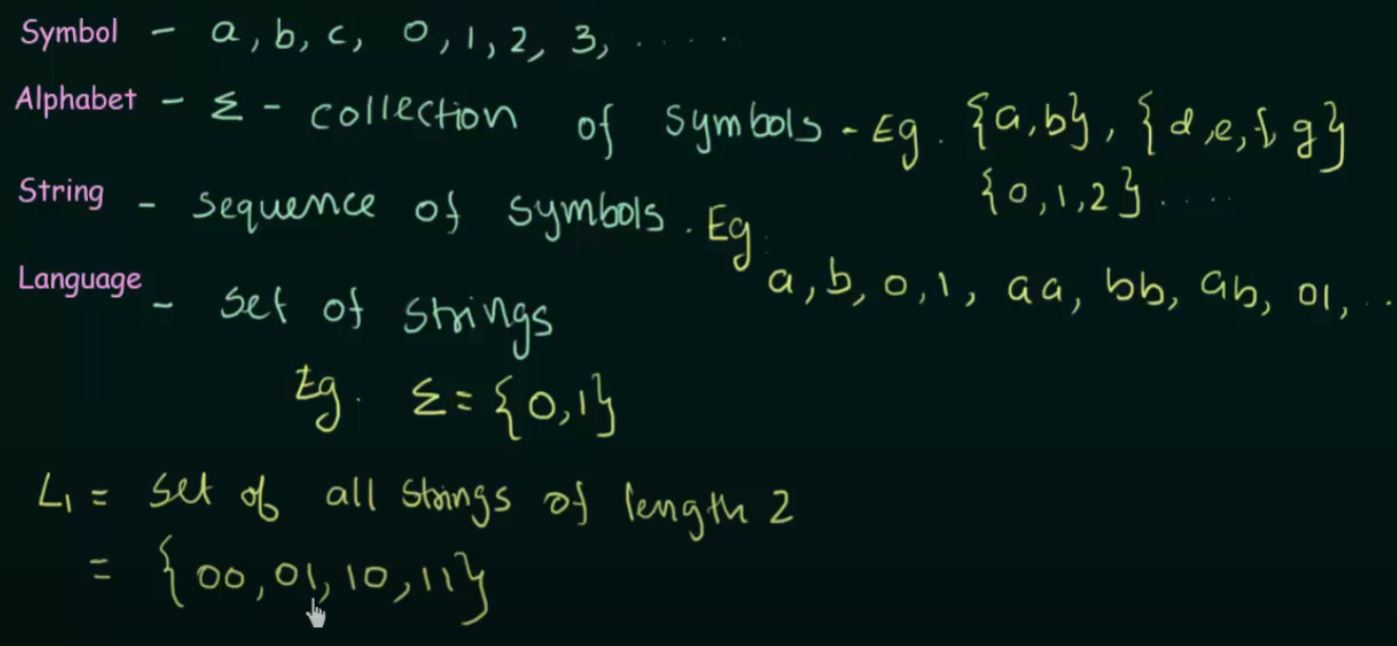 Symbol - a, b, c, 0, 1, 2, 3, .....
Alphabet - Σ - collection of symbols - Eg. {a,b}, {d,e,f,g}
{0,1,2} ....
String - sequence of symbols. Eg.
a, b, 0, 1, aa, bb, ab, 01, ..
Language - set of strings
Eg. Σ = {0,1}
L₁ = set of all strings of length 2
= {00, 01, 10, 11}